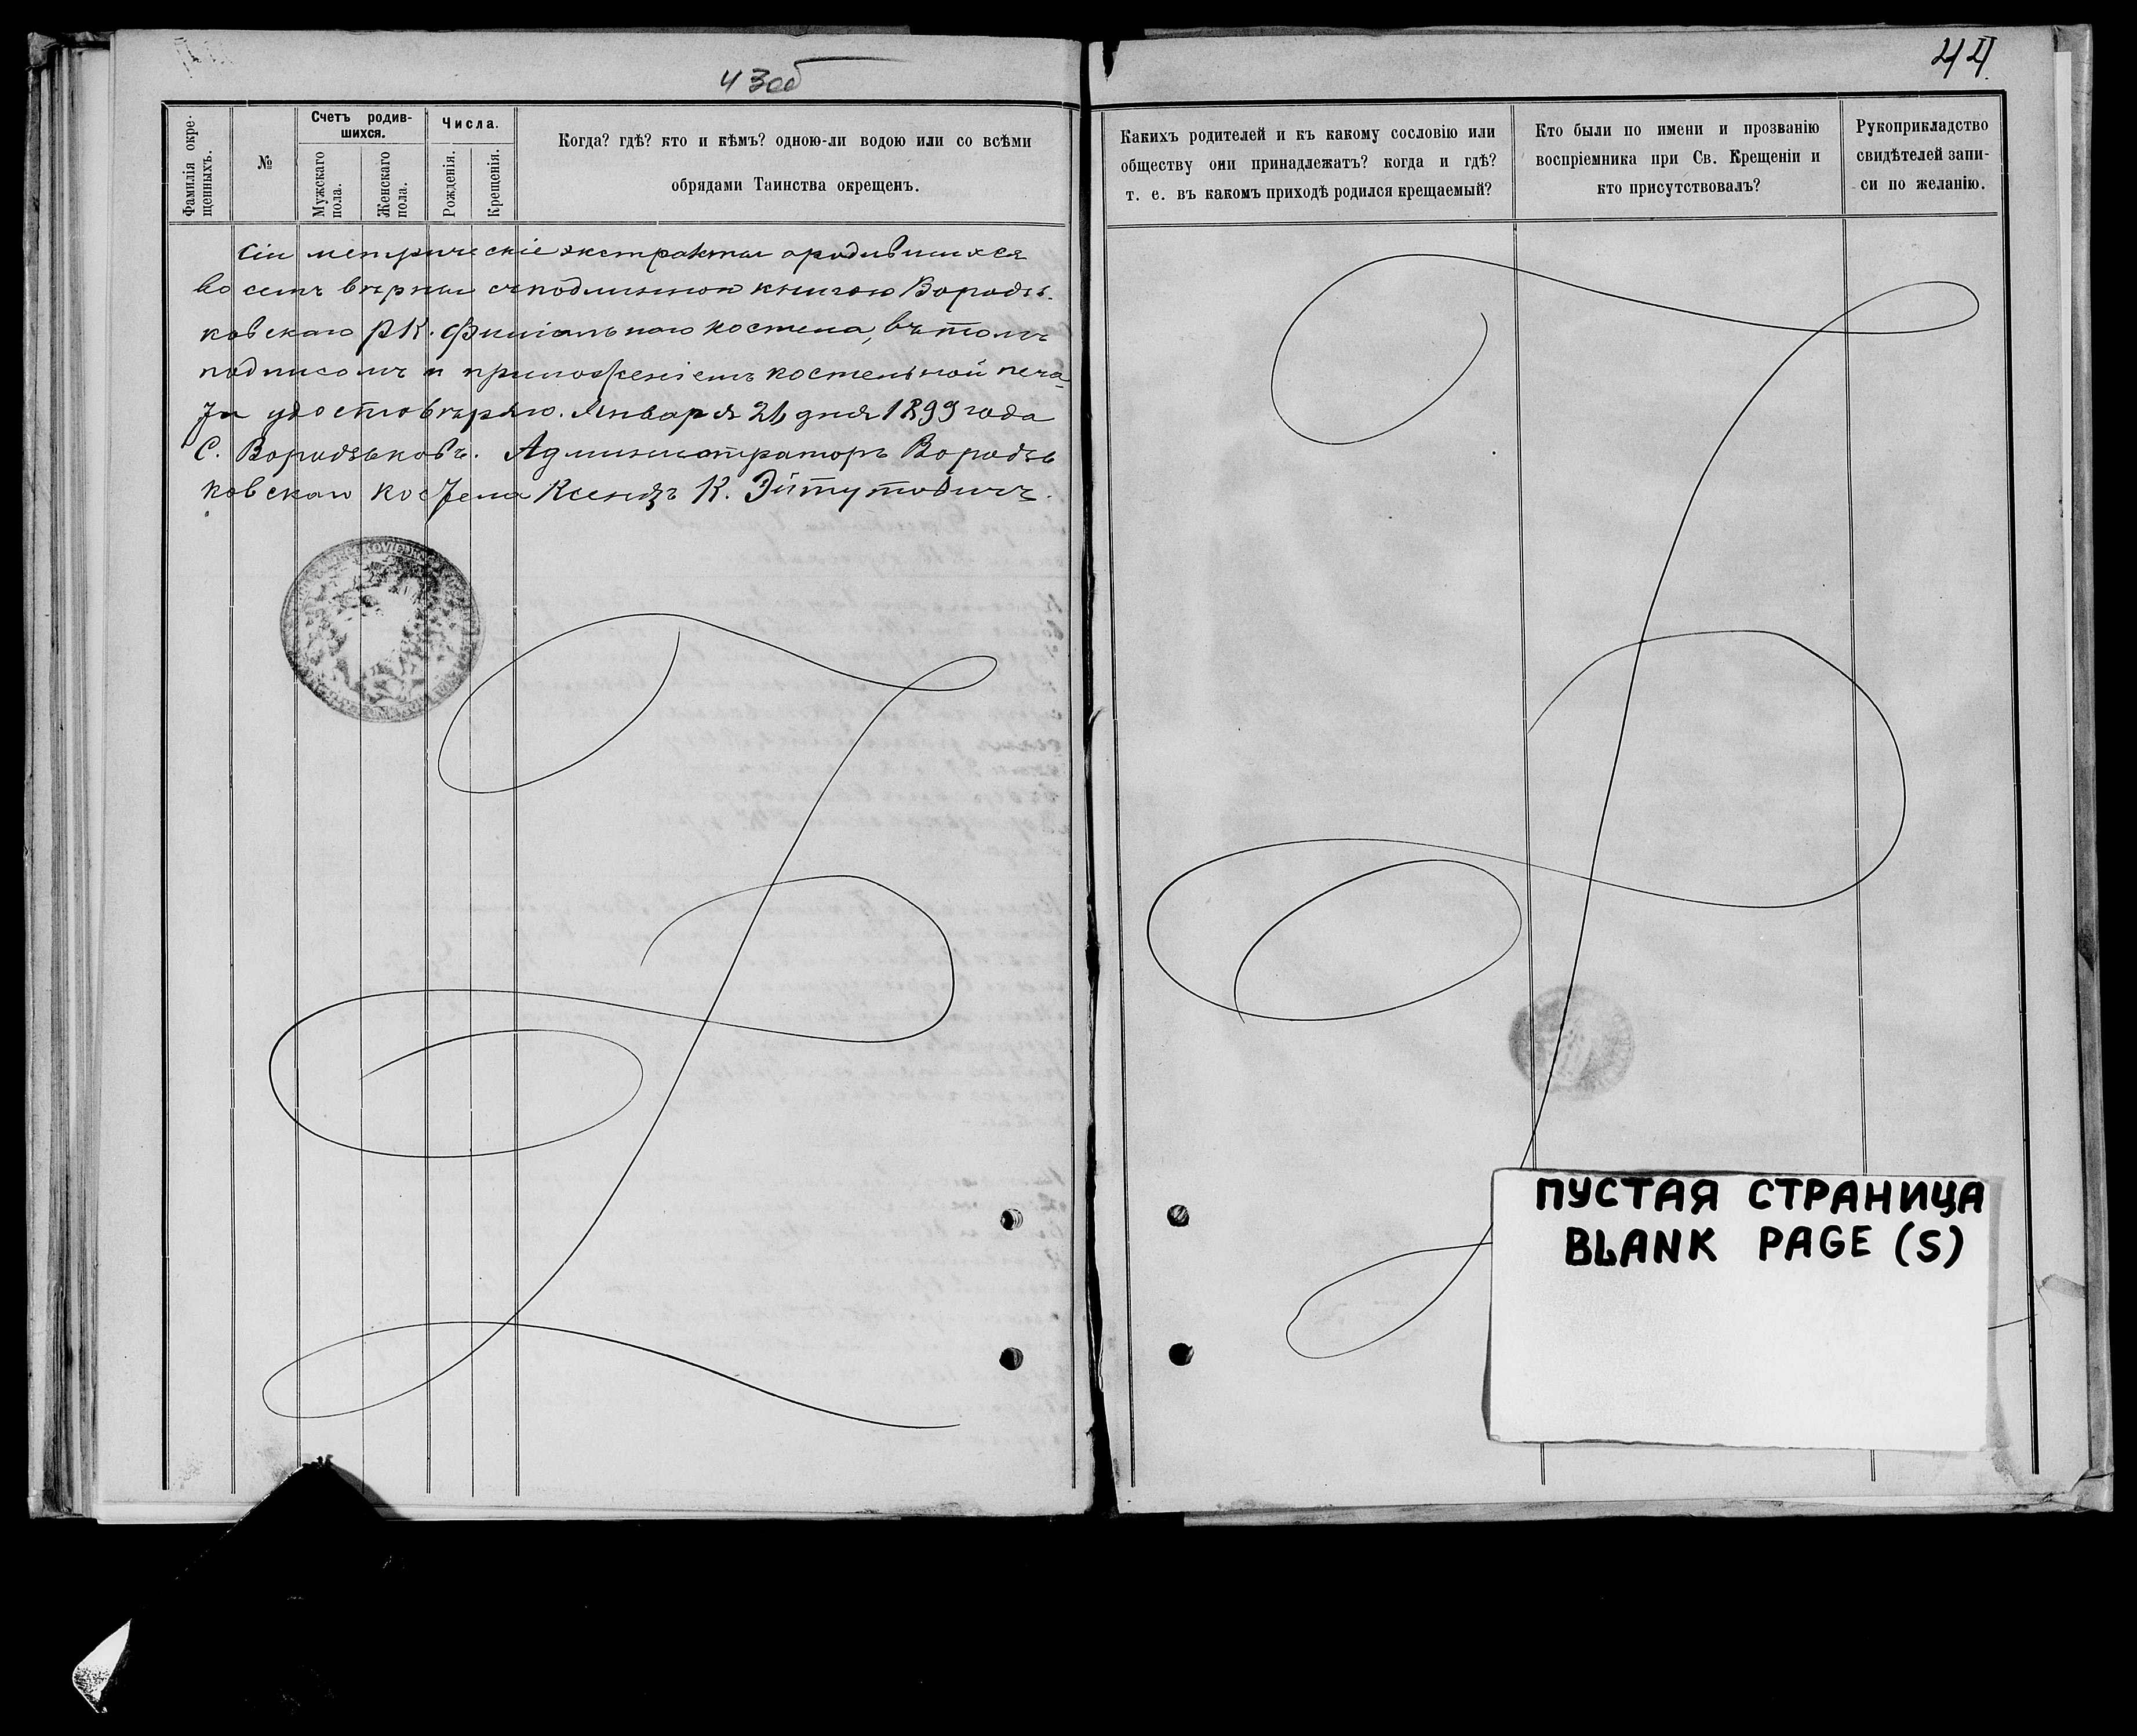 43об
Фамилія окре-
щенныхъ.
№
Счетъ родив-
шихся.
Мужскаго
пола.
Женскаго
пола.
Числа.
Рожденія.
Крещенія.
Когда? гдѣ? кто и кѣмъ? одною-ли водою или со всѣми
обрядами Таинства окрещенъ.
Сіи метрическіе экстракты о родившихся
во семъ вѣрны съ подлинною книгою Вородзь-
ковскаго РК. Филіальнаго костела, въ томъ
подписомъ и приложеніемъ костельной печа-
ти удостовѣряю. Января 26 дня 1899 года
С. Вородзьковъ. Администраторъ Вородзь
ковскаго костела Ксендзъ К. Эйтутовичъ.
44
Какихъ родителей и къ какому сословію или
обществу они принадлежатъ? когда и гдѣ?
т. е. въ какомъ приходѣ родился крещаемый?
Кто были по имени и прозванію
воспріемника при Св. Крещеніи и
кто присутствовалъ?
Рукоприкладство
свидѣтелей запи-
си по желанію.
ПУСТАЯ СТРАНИЦА
BLANK PAGE (S)